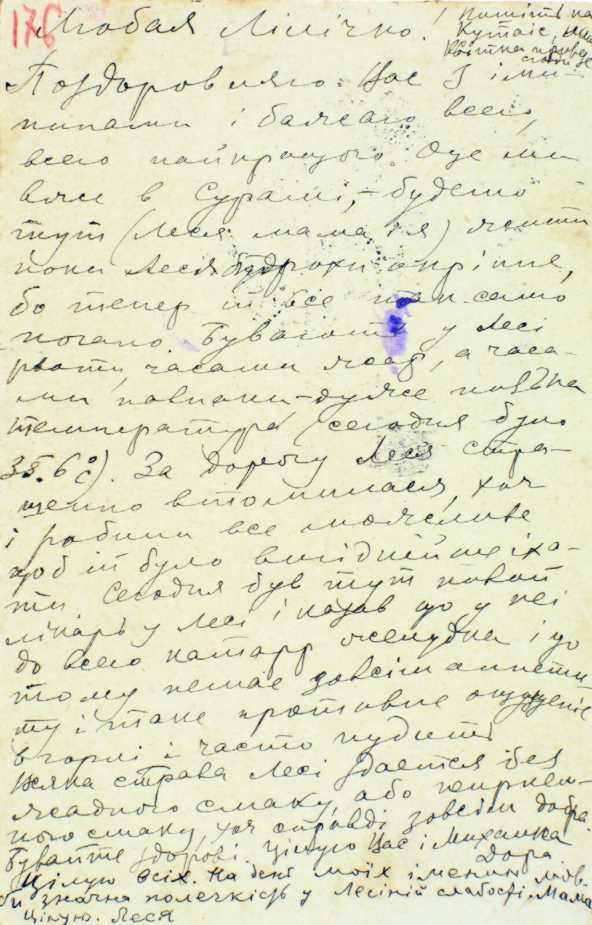 176
Любая Лілічко!
Пишіть на
Кутаіс,
Поздоровляю Вас з іми-
нинами і бажаю всего,
всего найкращого. Оце ми
вже в Сурамі, – будемо
тут (Леся мама і я) жити
поки Леся трохи окріпне,
бо тепер їй все так само
погано. Бувають у Лесі
часами жар, а часа-
ми навпаки – дуже низька
температура (сегодня було
35.6°C). За дорогу Леся стра-
шенно втомилася, хоч
і робили все можливе
щоб їй було вигіднійше їха-
ти. Сегодня був тут новий
лікарь у Лесі і казав що у неї
до всего катарр желудка і що
тому немає зовсім аппети-
ту і таке противне ощущеніе
в горлі і часто нудить
Всяка страва Лесі здается без
жадного смаку, або
ного смаку, хоч справді зовсім добра.
Бувайте здорові. Цілую Вас і Михалика
Дора.
Цілую всіх. На день моїх іменин
би значна полегкість у Лесіній слабості. Мама
Цілую. Леся